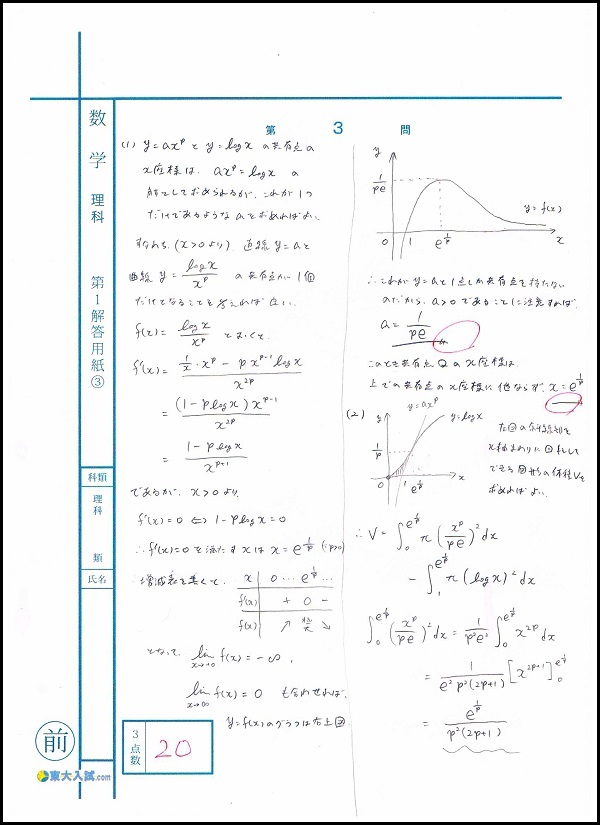 第 3 問
数学
理科
第1解答用紙③
科類
理科
類
氏名
前
東大入試.com
3
点数
20
(1) y=ax^p と y=log x の共有点の
x座標は、 ax^p = log x の
解として求められるが、これが1つ
だけであるような aを求めればよい
すなわち、(x>0より) 直線 y=a と
曲線 y = log x / x^p の共有点が1個
だけとなることを考えれば良い。
f(x) = log x / x^p とおくと
f'(x) = (1/x・x^p - p x^{p-1} log x) / x^{2p}
= (1-p log x) x^{p-1} / x^{2p}
= (1-p log x) / x^{p+1}
であるが、x>0 より、
f'(x)=0 ⇔ 1-p log x=0
∴ f'(x)=0 を満たす x は x = e^{1/p} (∵p>0)
増減表を書くと、
x 0 … e^{1/p} …
f'(x) + 0 -
f(x) ↗ 極大 ↘
となって、 lim_{x→+0} f(x) = -∞,
lim_{x→∞} f(x) = 0 も合わせれば、
y=f(x)のグラフは右上図
y
1/pe
y=f(x)
0 1 e^{1/p} x
∴ これが y=a と1点しか共有点を持たない
のだから、a>0 であることに注意すれば、
a = 1/pe
このとき共有点Qの x座標は
上での共有点の x座標に他ならず、x = e^{1/p}
(2)
y=ax^p
y=log x
y
1/p
0 1 e^{1/p} x
左図の斜線部を
x軸まわりに回転して
できる図形の体積Vを
求めればよい。
∴ V = ∫_0^{e^{1/p}} π (x^p/pe)^2 dx
- ∫_1^{e^{1/p}} π (log x)^2 dx
∫_0^{e^{1/p}} (x^p/pe)^2 dx = 1/(p^2e^2) ∫_0^{e^{1/p}} x^{2p} dx
= 1/(e^2 p^2 (2p+1)) [x^{2p+1}]_0^{e^{1/p}}
= e^{1/p} / (p^2 (2p+1))